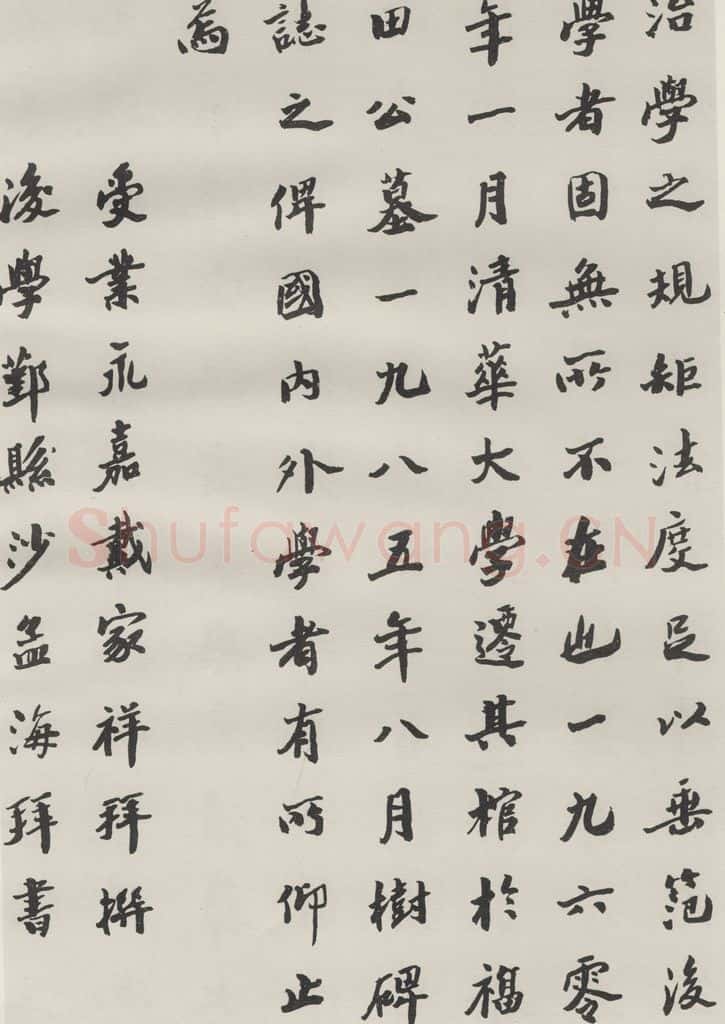 治學之規矩法度足以垂範後
學者固無所不在也一九六零
年一月清華大學遷其棺於福
田公墓一九八五年八月樹碑
誌之俾國內外學者有所仰止
焉
受業永嘉戴家祥拜撰
後學鄞縣沙孟海拜書
Shufawang.CN